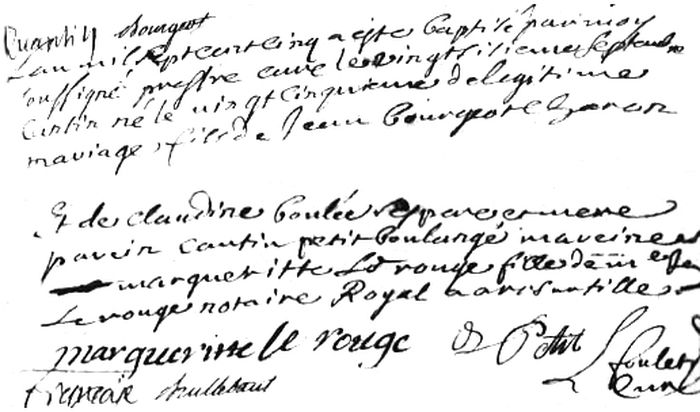 Quantin Bourgeot
L'an mil sept cent cinq a esté baptisé par moy
soussigné prestre curé le vingt sisieme septembre
Cantin né le vingt cinquieme de legitime
mariage fils de Jean Bourgeot charon
Et de claudine boulée ses pere et mere
parein cantin petit boulangé mareine
margueritte Le rouge fille de
Le rouge notaire Royal a arisantille
margueritte le rouge Petit
curé